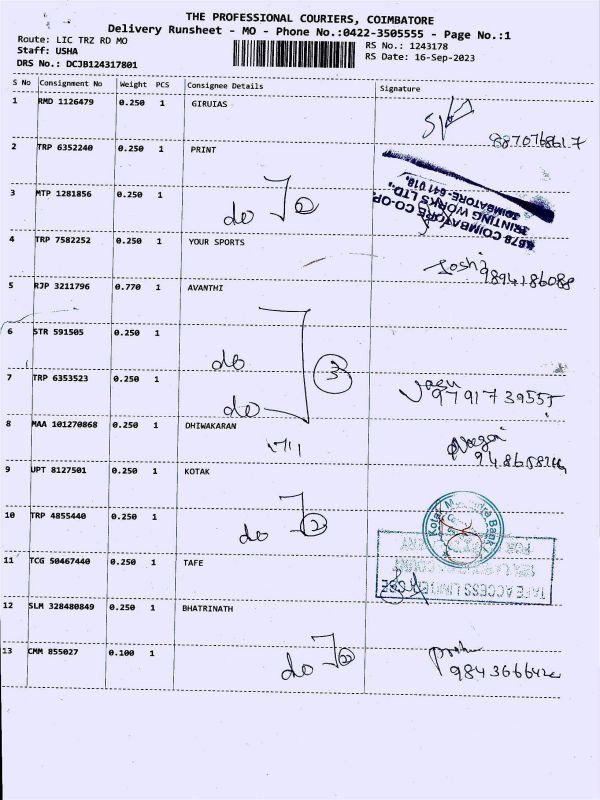 THE PROFESSIONAL COURIERS, COIMBATORE
Delivery Runsheet - MO - Phone No.:0422-3505555 - Page No.:1
Route: LIC TRZ RD MO
RS No.: 1243178
Staff: USHA
RS Date: 16-Sep-2023
DRS No.: DCJB124317801
S No Consignment No Weight PCS Consignee Details Signature
1 RMD 1126479 0.250 1 GIRUIAS
9870768617
2 TRP 6352240 0.250 1 PRINT
K678 COIMBATORE CO-OP.
PRINTING WORKS LTD.,
COIMBATORE-641 018.
3 MTP 1281856 0.250 1 do 2
4 TRP 7582252 0.250 1 YOUR SPORTS
Joshi 9894186088
5 RJP 3211796 0.770 1 AVANTHI
6 STR 591505 0.250 1 do 3
7 TRP 6353523 0.250 1 do
9791739555
8 MAA 101270868 0.250 1 DHIWAKARAN
9 UPT 8127501 0.250 1 KOTAK
Kotak Mahindra Bank
10 TRP 4855440 0.250 1 do 2
11 TCG 50467440 0.250 1 TAFE
TAFE ACCESS LIMITED
12 SLM 328480849 0.250 1 BHATRINATH
13 CMM 855027 0.100 1 do 2